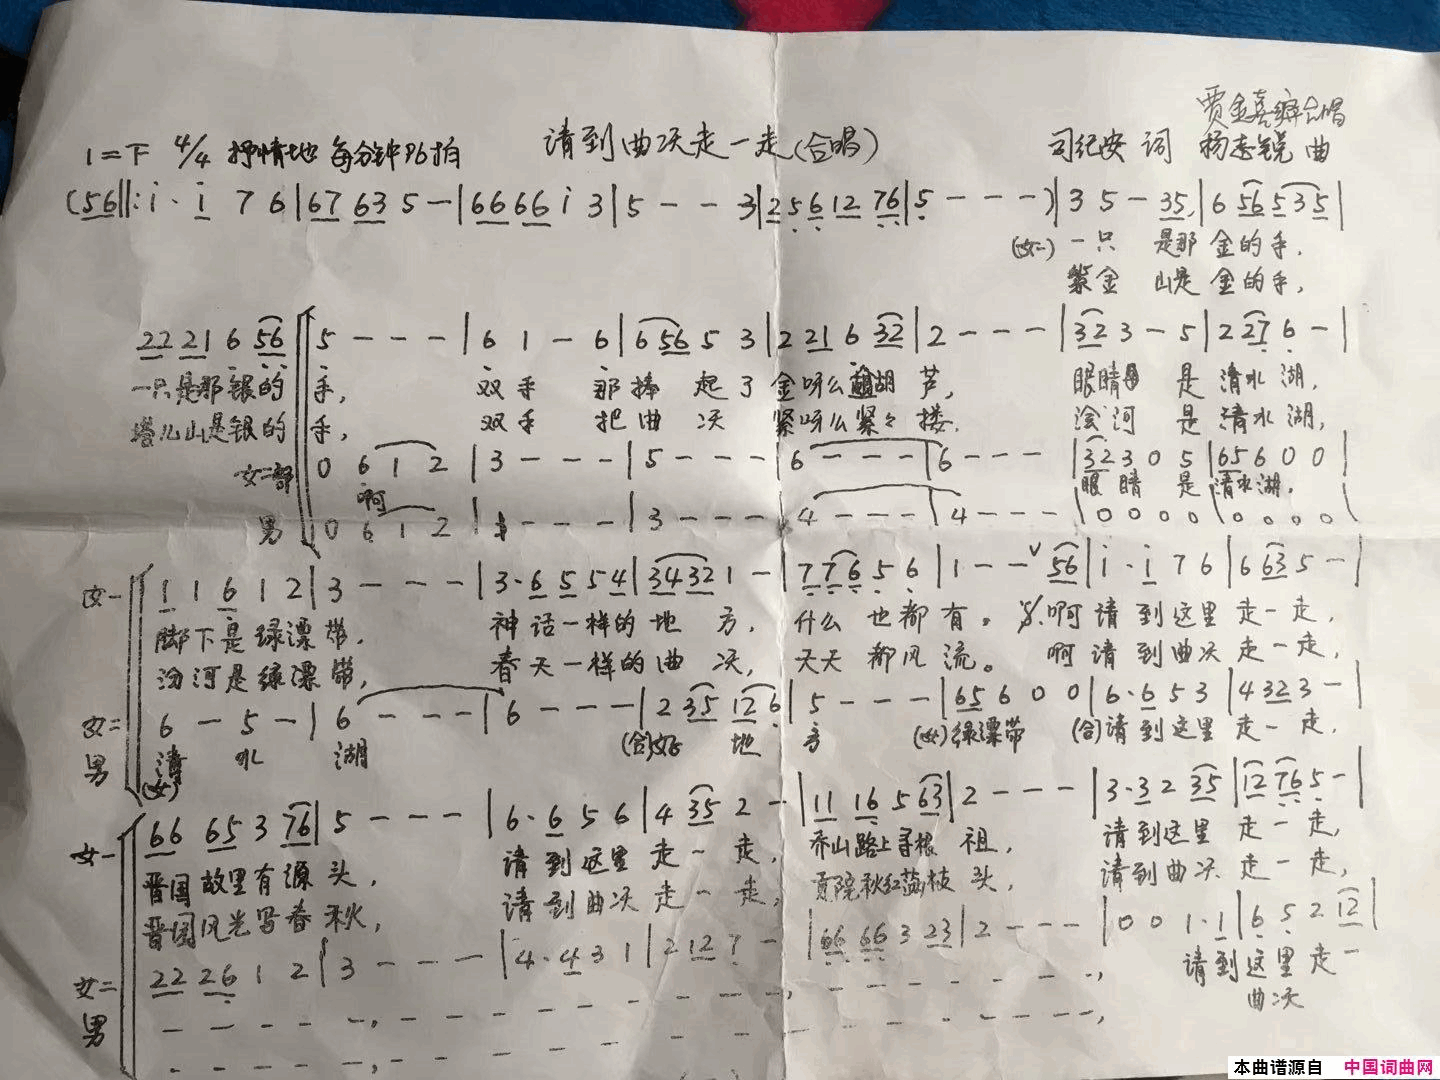 贾金喜编合唱
1=F 4/4 抒情地 每分钟96拍 请到曲沃走一走(合唱) 司纪安 词 杨志锐 曲
(56‖:i·i 7 6|67 63 5 -|66 66 i 3|5 - - 3|2 5 6 12 76|5 - - -)|3 5 - 35|6 56 5 35|
(女二) 一只 是那 金的手,
紫金 山是 金的手,
22 21 6 56 5 - - -|6 1 - 6|6 56 5 3|2 21 6 32|2 - - -|32 3 - 5|2 27 6 -|
一只是那银的 手, 双手 那捧 起了 金呀么葫芦, 眼睛 是 清水湖,
塔儿山是银的 手, 双手 把曲 沃 紧呀么紧々搂. 浍河 是 清水湖,
女二部 0 6 1 2|3 - - -|5 - - -|6 - - -|6 - - -|32 3 0 5|65 6 0 0|
啊 眼睛 是 清水湖.
男 0 6 1 2|1 - - -|3 - - -|4 - - -|4 - - -|0 0 0 0|0 0 0 0|
女一 1 1 6 1 2|3 - - -|3·6 5 5 4|34 32 1 -|7 7 6 5 6|1 - - V 56|i·i 7 6|6 63 5 -|
脚下是绿漂带, 神话一样的地 方, 什么 也都有。 啊请到这里 走一走,
汾河是绿漂带, 春天一样的曲 沃, 天天 都风流。 啊请到曲沃 走一走,
女二 6 - 5 -|6 - - -|6 - - -|2 35 12 6|5 - - -|65 6 0 0|6·6 5 3|4 32 3 -|
男 清 水 湖 (合)好 地 方 (女)绿漂带 (合)请到这里 走一走,
(女)
女一 66 65 3 76|5 - - -|6·6 5 6|4 35 2 -|11 16 5 63|2 - - -|3·3 2 35|12 76 5 -|
晋国故里有源头, 请到这里走一走, 乔山路上寻根祖, 请到这里 走一走,
晋国风光写春秋, 请到曲沃走一走, 贡院秋红荡枝头, 请到曲沃 走一走,
女二 22 26 1 2|3 - - -|4·4 3 1|2 12 7 -|66 66 3 23|2 - - -|0 0 1·1|6 5 2 12|
请到这里走一
男 曲沃
本曲谱源自 中国词曲网